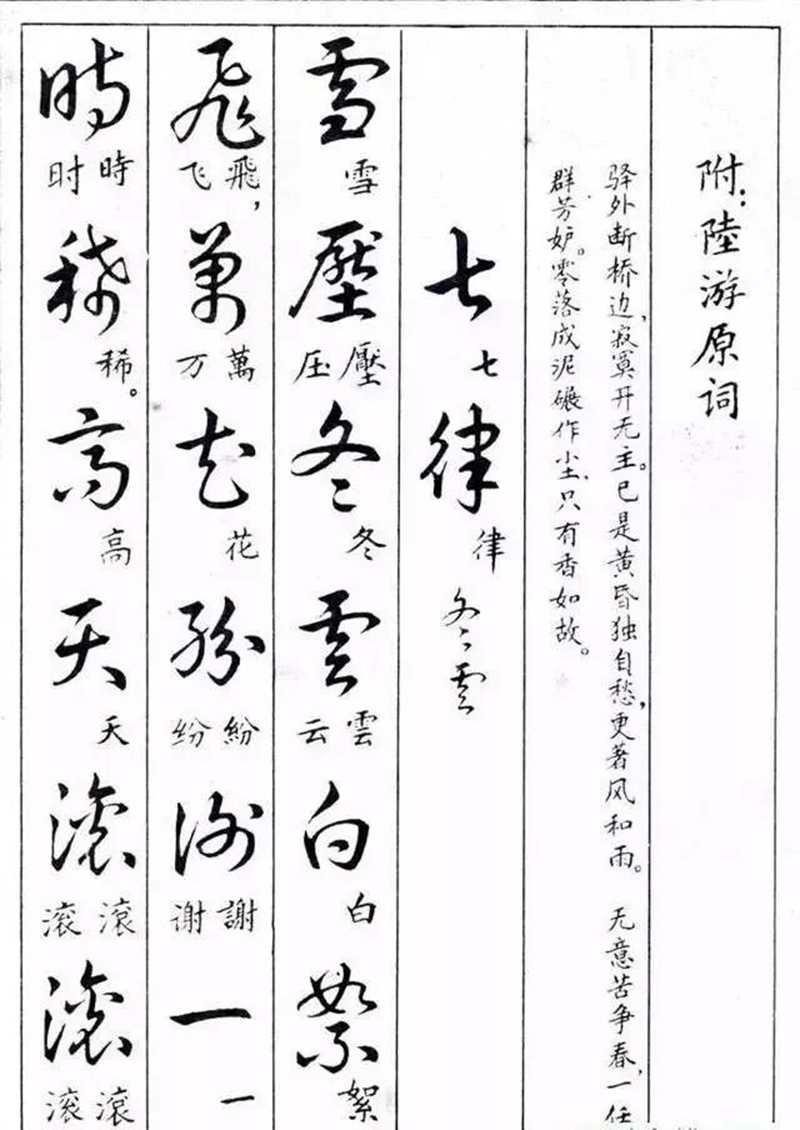 附：陸游原词
驿外断桥边，寂寞开无主。已是黄昏独自愁，更著风和雨。 无意苦争春，一任
群芳妒。零落成泥碾作尘，只有香如故。
七 七 律 律 冬雲
雪 雪 壓 压 壓 冬 冬 雲 云 雲 白 白 絮 絮
飛 飞 飛， 萬 万 萬 花 花 紛 纷 紛 謝 谢 謝 一 一
時 时 時 稀 稀。 高 高 天 天 滾 滚 滾 滾 滚 滾